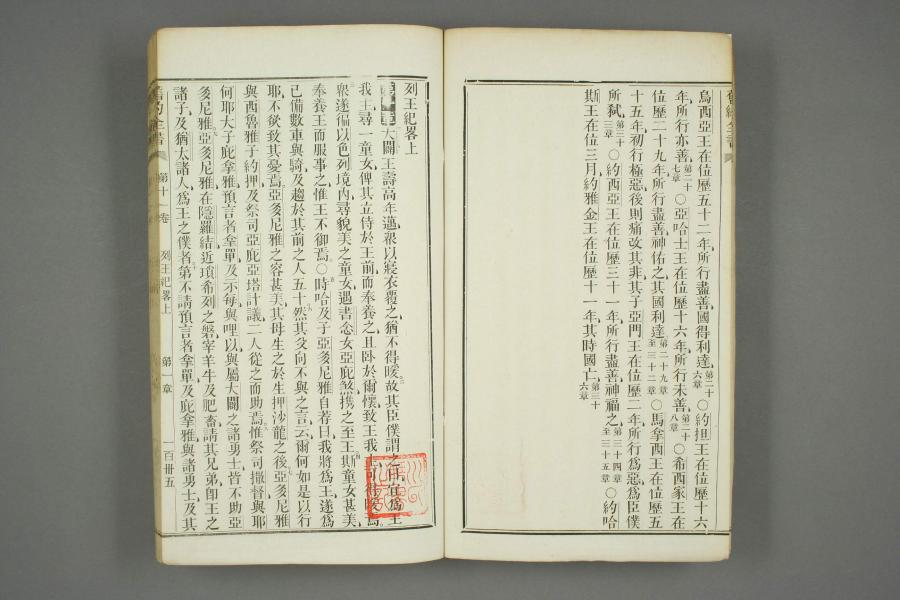 烏西亞王在位歷五十二年、所行盡善、國得利達、第二十六章○約担王在位歷十六
年、所行亦善、第二十七章○亞哈士王在位歷十六年、所行未善、第二十八章○希西家王在
位歷二十九年、所行盡善、神佑之、其國利達、第二十九章至三十二章○馬拿西王在位歷五
十五年、初行極惡、後則痛改其非、其子亞門王在位歷二年、所行爲惡、爲臣僕
所弒、第三十三章○約西亞王在位歷三十一年、所行盡善、神福之、第三十四章至三十五章○約哈
斯王在位三月、約雅金王在位歷十一年、其時國亡、第三十六章
列王紀畧上
第一章 大闢王壽高年邁、衆以寢衣覆之、猶不得暖、故其臣僕謂之曰、宜爲王
我主尋一童女、俾其立侍於王前而奉養之、且卧於爾懷、致王我主可得暖焉、
衆遂徧以色列境內、尋貌美之童女、遇書念女亞庇煞、携之至王、斯童女甚美、
奉養王而服事之、惟王不御焉、○時哈及子亞多尼雅自荐曰、我將爲王、遂爲
己備數車與騎、及趨於其前之人五十、然其父向不與之言云、爾何如是以行
耶、不欲致其憂焉、亞多尼雅之容甚美、其母生之於生押沙龍之後、亞多尼雅
與西魯雅子約押、及祭司亞庇亞塔計議、二人從之而助焉、惟祭司撒督與耶
何耶大子庇拿雅、預言者拿單、及示每與哩、以與屬大闢之諸勇士、皆不助亞
多尼雅、亞多尼雅在隱羅結近瑣希列之磐、宰羊牛及肥畜、請其兄弟卽王之
諸子、及猶太諸人爲王之僕者、第不請預言者拿單、及庇拿雅、與諸勇士、及其
舊約全書 第十一卷 列王紀畧上 第一章 一百卅五